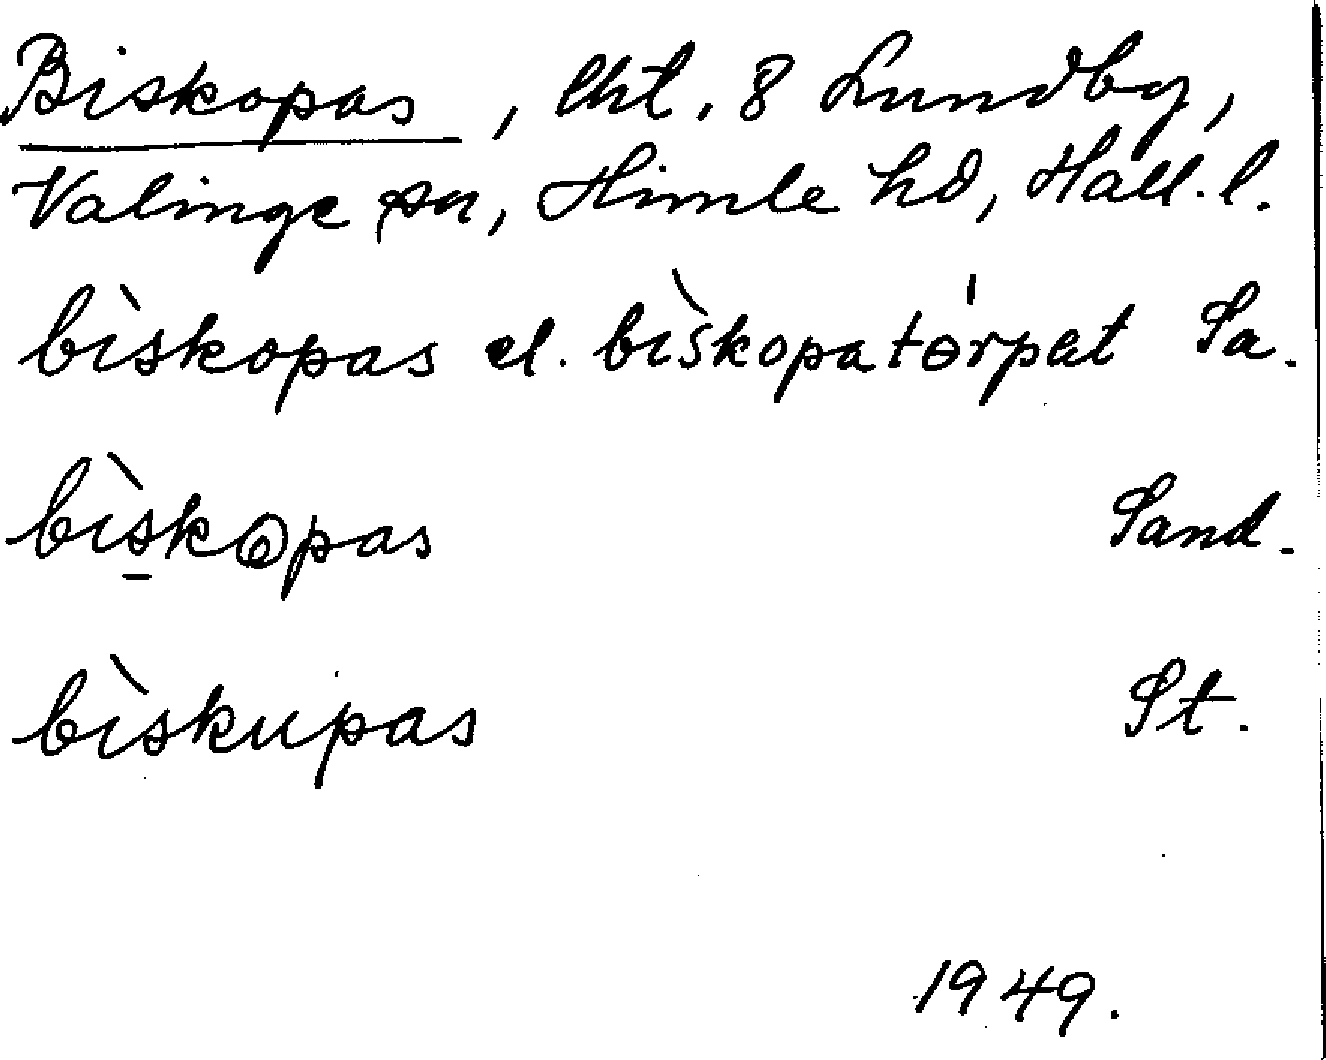 Biskopas, lht. 8 Lundby,
Valinge sn, Himle hd, Hall. l.
bìskopas el. bìskopatórpət Sa.
bìskopas Sand.
bìskupas St.
1949.